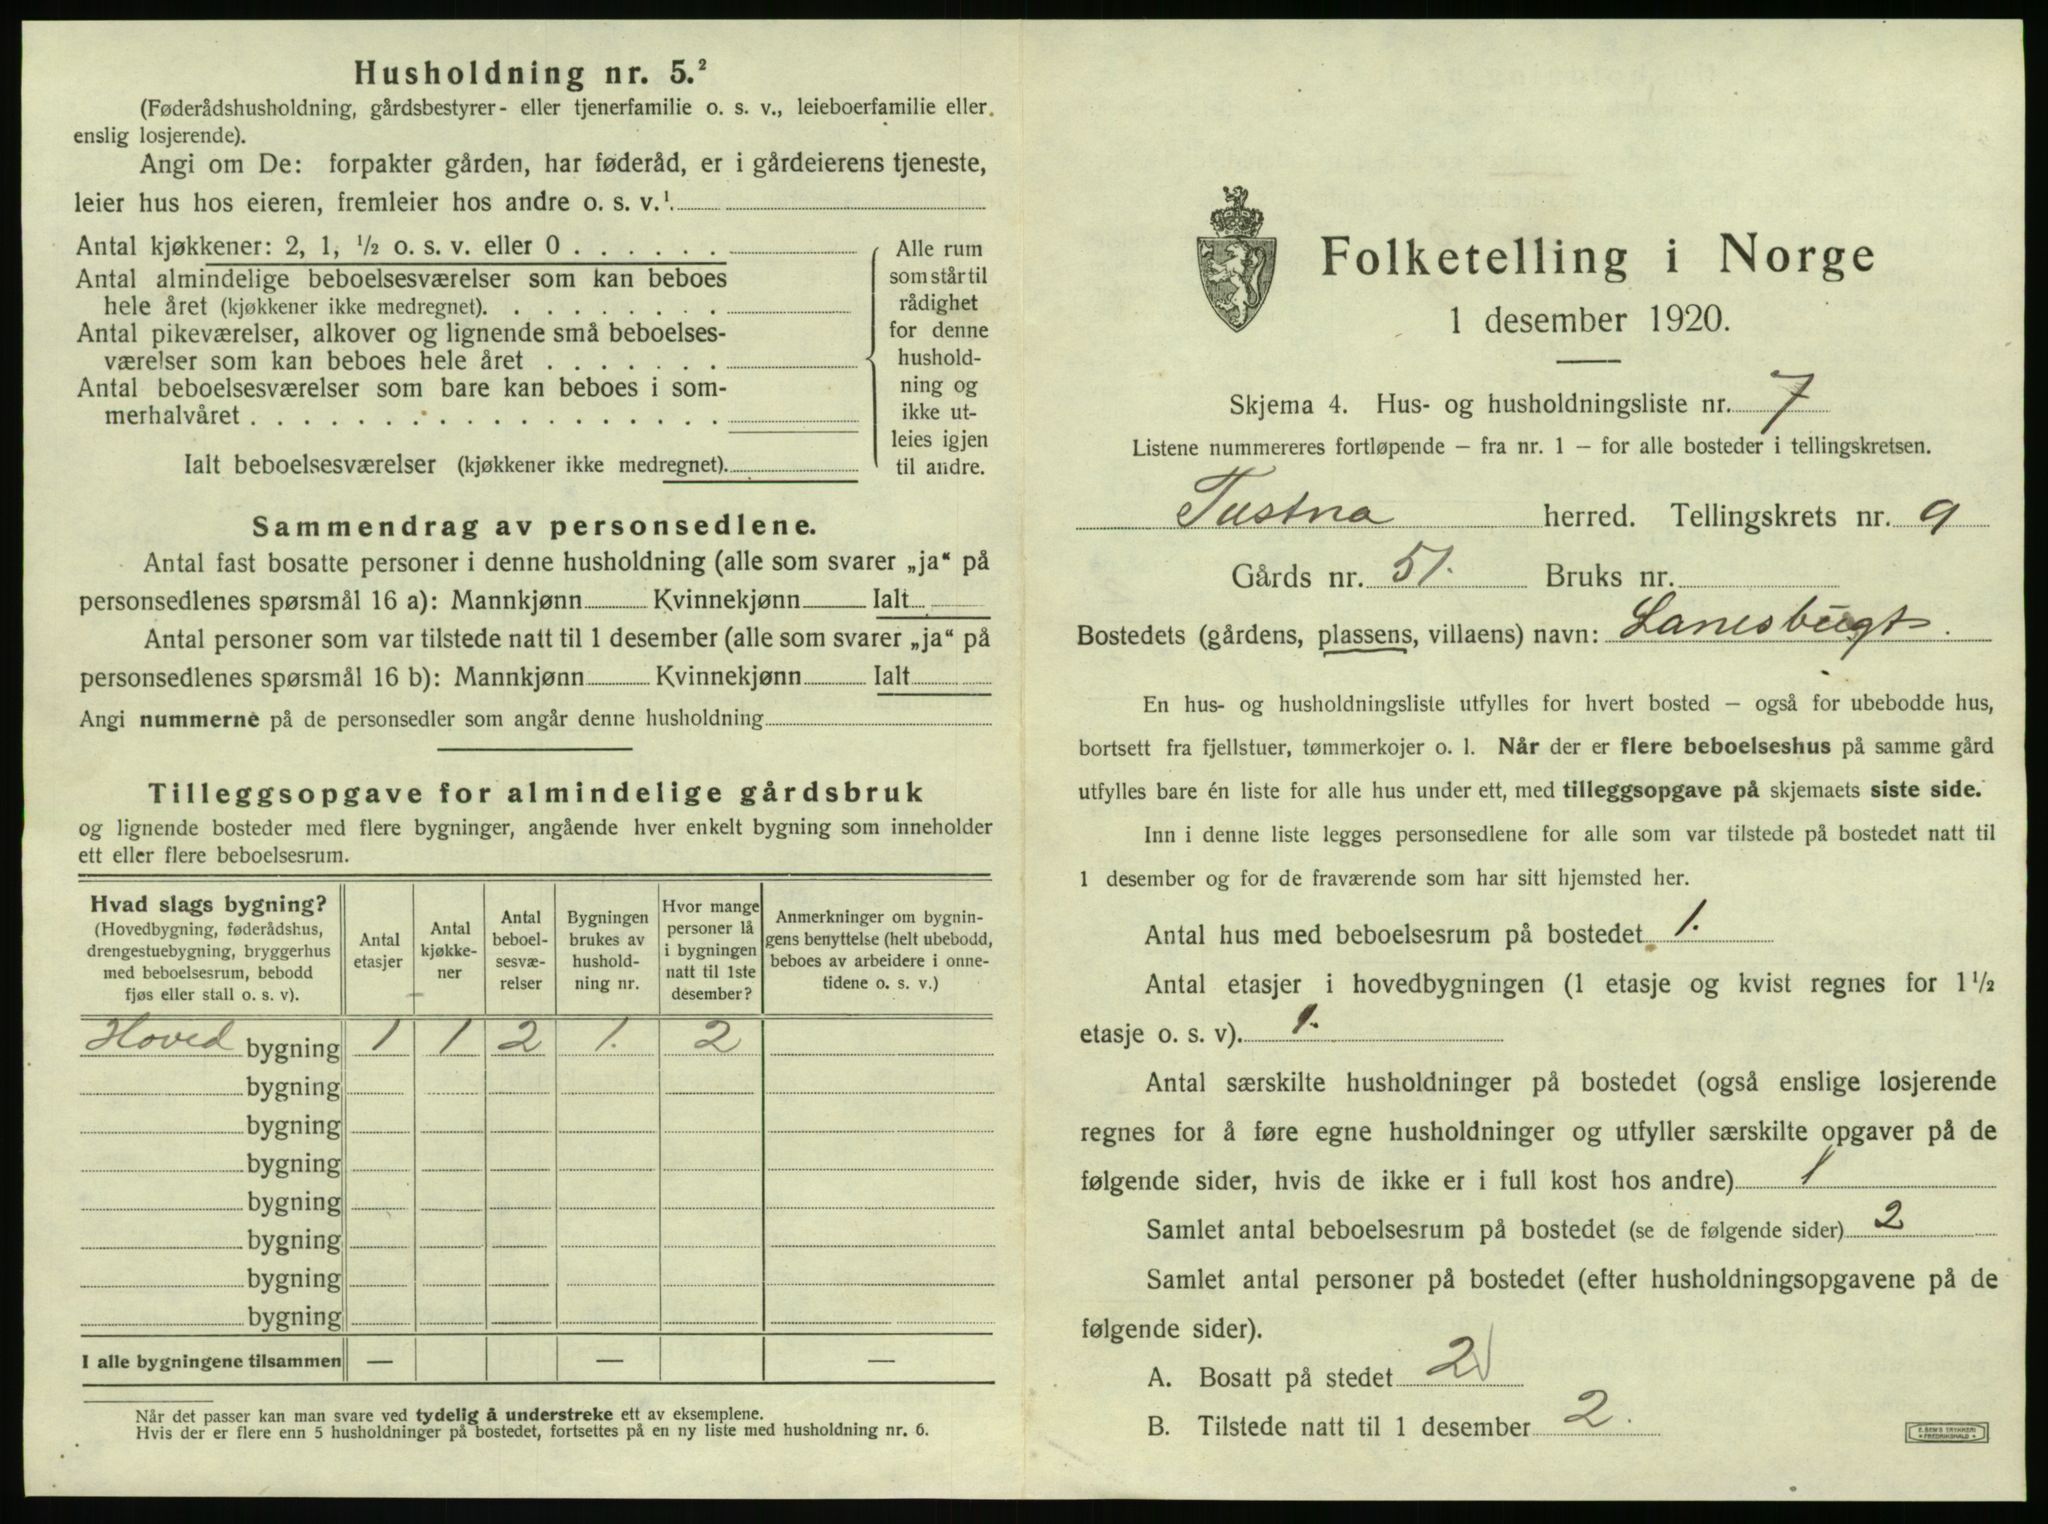 Husholdning nr. 5.²
(Føderådshusholdning, gårdsbestyrer- eller tjenerfamilie o. s. v., leieboerfamilie eller
enslig losjerende).
Angi om De: forpakter gården, har føderåd, er i gårdeierens tjeneste,
leier hus hos eieren, fremleier hos andre o. s. v.¹
Antal kjøkkener: 2, 1, ½ o. s. v. eller 0 . . . . . .
Antal almindelige beboelsesværelser som kan beboes
hele året (kjøkkener ikke medregnet). . . . . . . . .
Antal pikeværelser, alkover og lignende små beboelses-
værelser som kan beboes hele året . . . . . . .
Antal beboelsesværelser som bare kan beboes i som-
merhalvåret . . . . . . . . . . . . . . . . . .
Ialt beboelsesværelser (kjøkkener ikke medregnet).
Alle rum
som står til
rådighet
for denne
hushold-
ning og
ikke ut-
leies igjen
til andre.
Sammendrag av personsedlene.
Antal fast bosatte personer i denne husholdning (alle som svarer „ja“ på
personsedlenes spørsmål 16 a): Mannkjønn Kvinnekjønn Ialt
Antal personer som var tilstede natt til 1 desember (alle som svarer „ja“ på
personsedlenes spørsmål 16 b): Mannkjønn Kvinnekjønn Ialt
Angi nummerne på de personsedler som angår denne husholdning
Tilleggsopgave for almindelige gårdsbruk
og lignende bosteder med flere bygninger, angående hver enkelt bygning som inneholder
ett eller flere beboelsesrum.
Hvad slags bygning?
(Hovedbygning, føderådshus,
drengestuebygning, bryggerhus
med beboelsesrum, bebodd
fjøs eller stall o. s. v).
Antal
etasjer
Antal
kjøkke-
ner
Antal
beboel-
sesvæ-
relser
Bygningen
brukes av
hushold-
ning nr.
Hvor mange
personer lå
i bygningen
natt til 1ste
desember?
Anmerkninger om bygnin-
gens benyttelse (helt ubebodd,
beboes av arbeidere i onne-
tidene o. s. v.)
Hoved bygning 1 1 2 1. 2
bygning
bygning
bygning
bygning
bygning
bygning
bygning
I alle bygningene tilsammen — — —
Når det passer kan man svare ved tydelig å understreke ett av eksemplene.
Hvis der er flere enn 5 husholdninger på bostedet, fortsettes på en ny liste med husholdning nr. 6.
Folketelling i Norge
1 desember 1920.
Skjema 4. Hus- og husholdningsliste nr. 7
Listene nummereres fortløpende — fra nr. 1 — for alle bosteder i tellingskretsen.
Tustna herred. Tellingskrets nr. 9
Gårds nr. 51. Bruks nr.
Bostedets (gårdens, plassens, villaens) navn: Lanesbugt.
En hus- og husholdningsliste utfylles for hvert bosted — også for ubebodde hus,
bortsett fra fjellstuer, tømmerkojer o. l. Når der er flere beboelseshus på samme gård
utfylles bare én liste for alle hus under ett, med tilleggsopgave på skjemaets siste side.
Inn i denne liste legges personsedlene for alle som var tilstede på bostedet natt til
1 desember og for de fraværende som har sitt hjemsted her.
Antal hus med beboelsesrum på bostedet 1.
Antal etasjer i hovedbygningen (1 etasje og kvist regnes for 1½
etasje o. s. v). 1.
Antal særskilte husholdninger på bostedet (også enslige losjerende
regnes for å føre egne husholdninger og utfyller særskilte opgaver på de
følgende sider, hvis de ikke er i full kost hos andre) 1
Samlet antal beboelsesrum på bostedet (se de følgende sider) 2
Samlet antal personer på bostedet (efter husholdningsopgavene på de
følgende sider).
A. Bosatt på stedet 2
B. Tilstede natt til 1 desember 2.
E. SEM'S TRYKKERI
* FREDRIKSHALD *